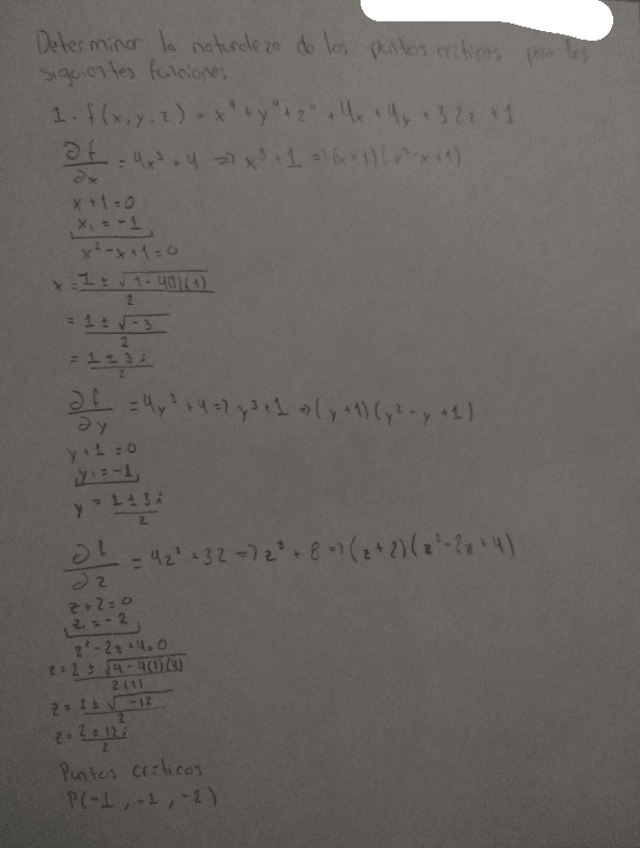 Determinar la naturaleza de los puntos criticos para las
siguientes funciones
1. f(x,y,z) = x⁴ + y⁴ + z⁴ + 4x + 4y + 32z + 1
∂f/∂x = 4x³ + 4 => x³ + 1 => (x+1)(x²-x+1)
x + 1 = 0
x₁ = -1
x² - x + 1 = 0
x = (1 ± √(1-4(1)(1)))/2
= (1 ± √-3)/2
= (1 ± 3i)/2
∂f/∂y = 4y³ + 4 => y³ + 1 => (y+1)(y²-y+1)
y + 1 = 0
y₁ = -1
y = (1 ± 3i)/2
∂f/∂z = 4z³ + 32 => z³ + 8 => (z+2)(z²-2z+4)
z + 2 = 0
z₁ = -2
z² - 2z + 4 = 0
z = (2 ± √(4-4(1)(4)))/2(1)
z = (2 ± √-12)/2
z = (2 ± 12i)/2
Puntos críticos
P(-1, -1, -2)